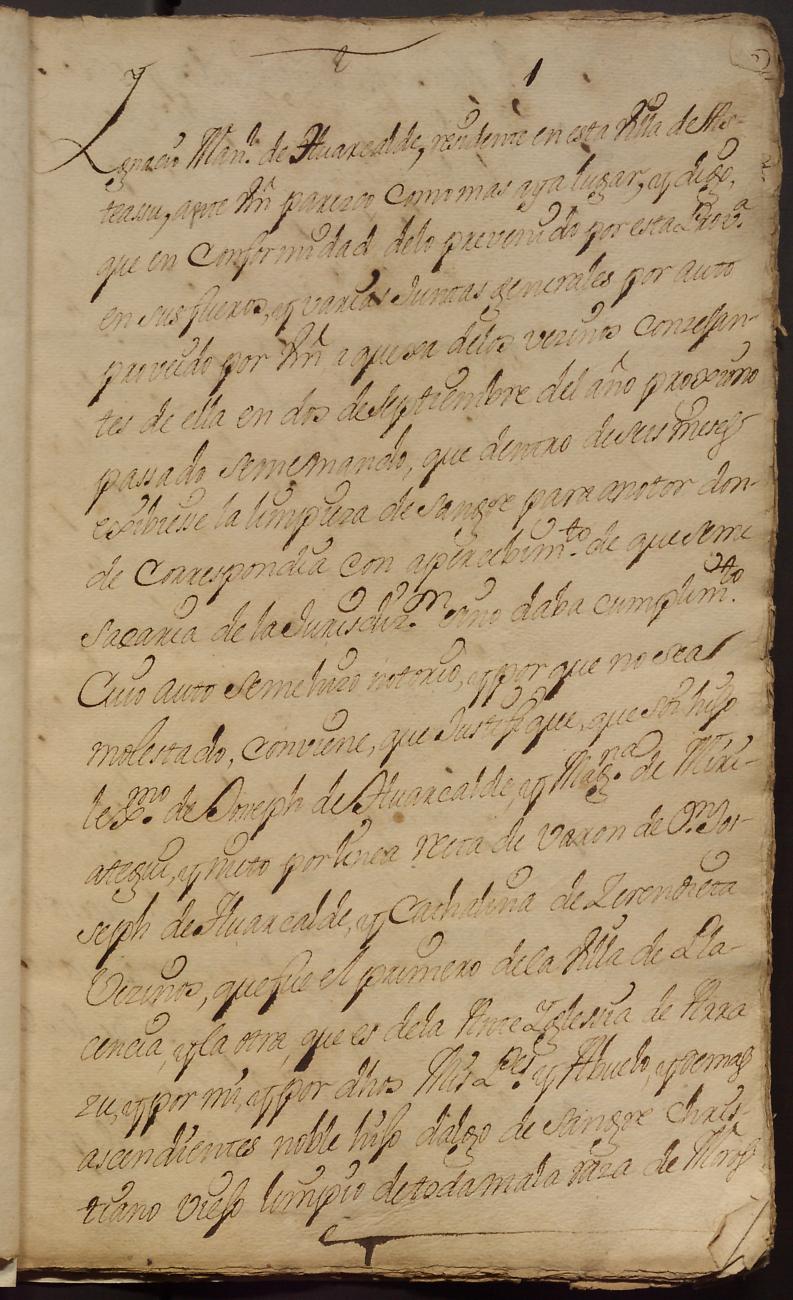 1
Ygnacio Man.l de Aluarcalde, residente en esta Villa de As-
teasu, ante Vm parezco como mas aya lugar, y digo,
que en Conformidad delo prevenido por esta Prov.a
en sus fueros, y varias Juntas generales por auto
proveido por Vm a quexa delos vezinos Conzessan-
tes de ella en dos de Septiembre del año proximo
passado seme mando, que dentro de seis meses
exibiesse la limpieza de sangre para motor don-
de Correspondia con apercebim.to de que seme
sacaria de la Jurisdiz.n sino daba cumplim.to
Cuio auto seme hizo notorio, y por que no sea
molestado, conviene, que Justifique, que soi hijo
le.mo de Joseph de Aluarcalde, y Mag.na de Miri-
ategui, y nieto por linea recta de varon de On Jos-
seph de Aluarcalde, y Cathalina de Zerendieta
Vezinos, que fue el primero dela Villa de Pla-
cencia, y la otra, que es dela Ante Yglessia de Arra
zu, y por mi, y por dhos Mis P.es y Abuelo, y demas
ascendientes noble hijo dalgo de sangre Chris-
tiano viejo limpio de toda mala raza de Moros